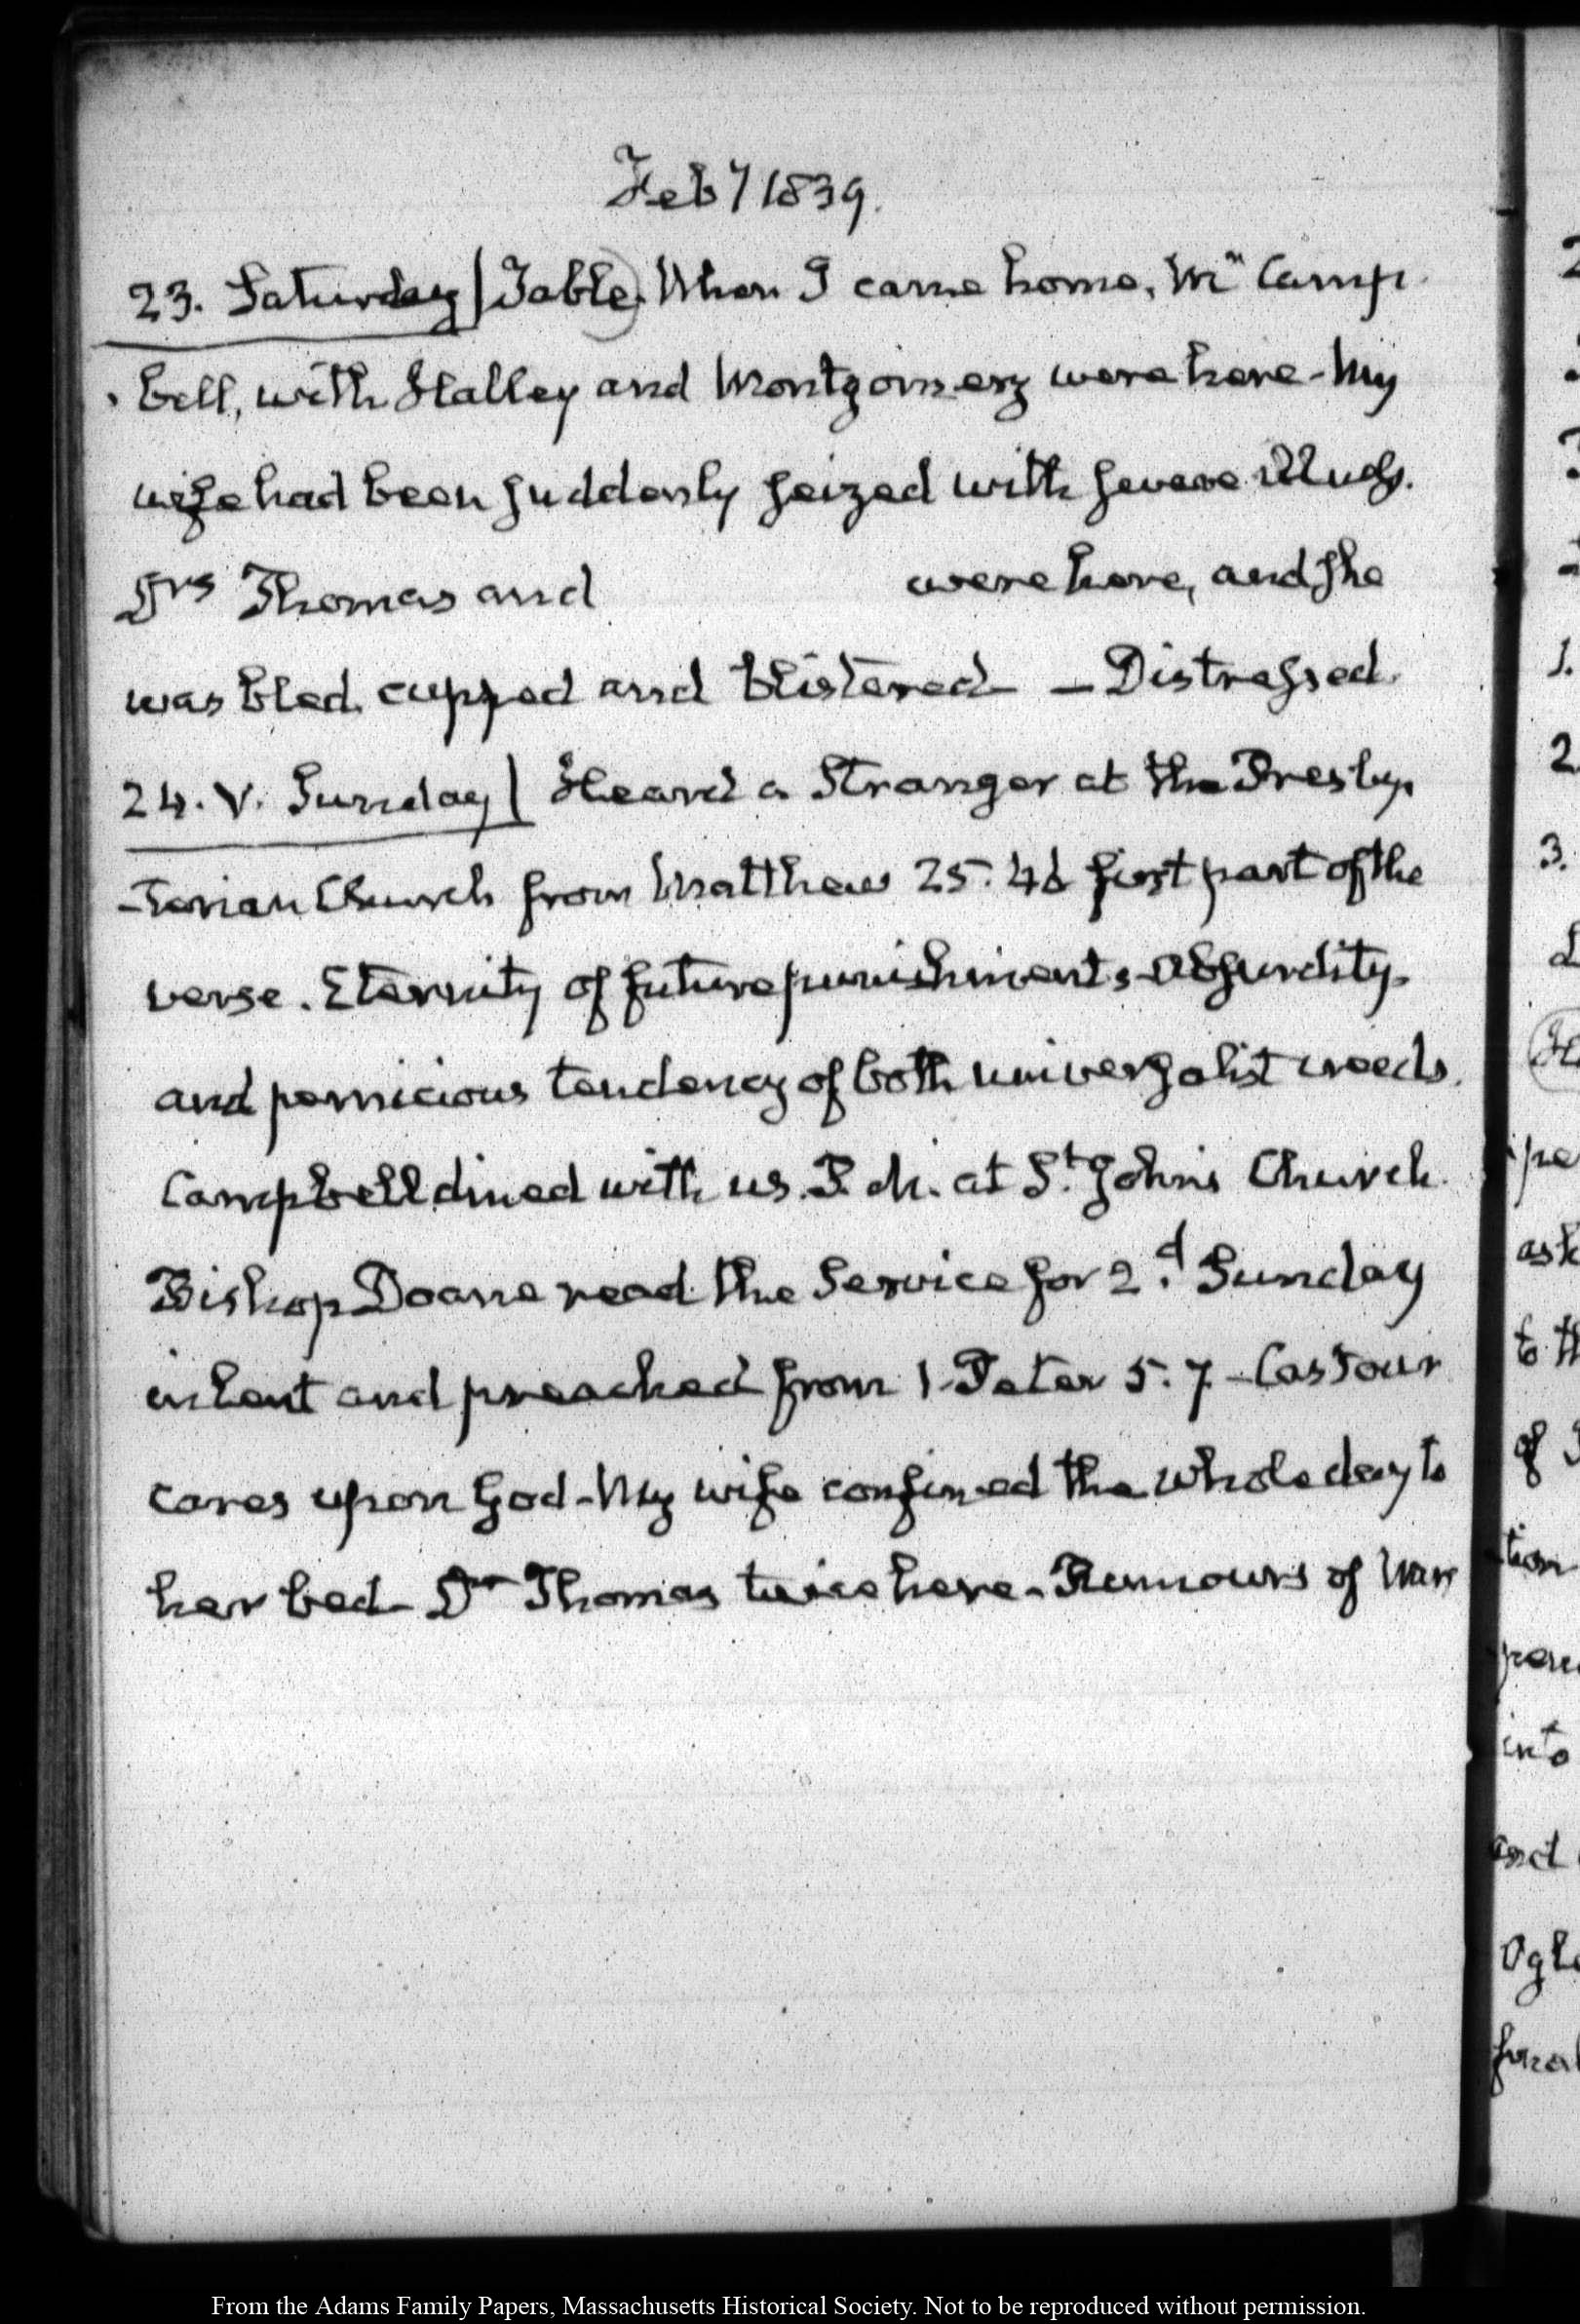 Feby 1839.
23. Saturday | Table) When I came home, Mr Camp
-bell, with Halley and Montgomery were here - My
wife had been suddenly seized with severe illness.
Drs Thomas and were here, and she
was bled, cupped and blistered - Distressed.
24. V. Sunday | Heard a Stranger at the Presby-
-terian Church from Matthew 25. 46 first part of the
verse. Eternity of future punishments - Absurdity
and pernicious tendency of both universalist creeds.
Campbell dined with us. P. M. at St. John's Church.
Bishop Doane read the Service for 2d. Sunday
in Lent and preached from 1. Peter 5. 7 - Cast our
cares upon God - My wife confined the whole day to
her bed - Dr Thomas twice here - Rumours of War
From the Adams Family Papers, Massachusetts Historical Society. Not to be reproduced without permission.